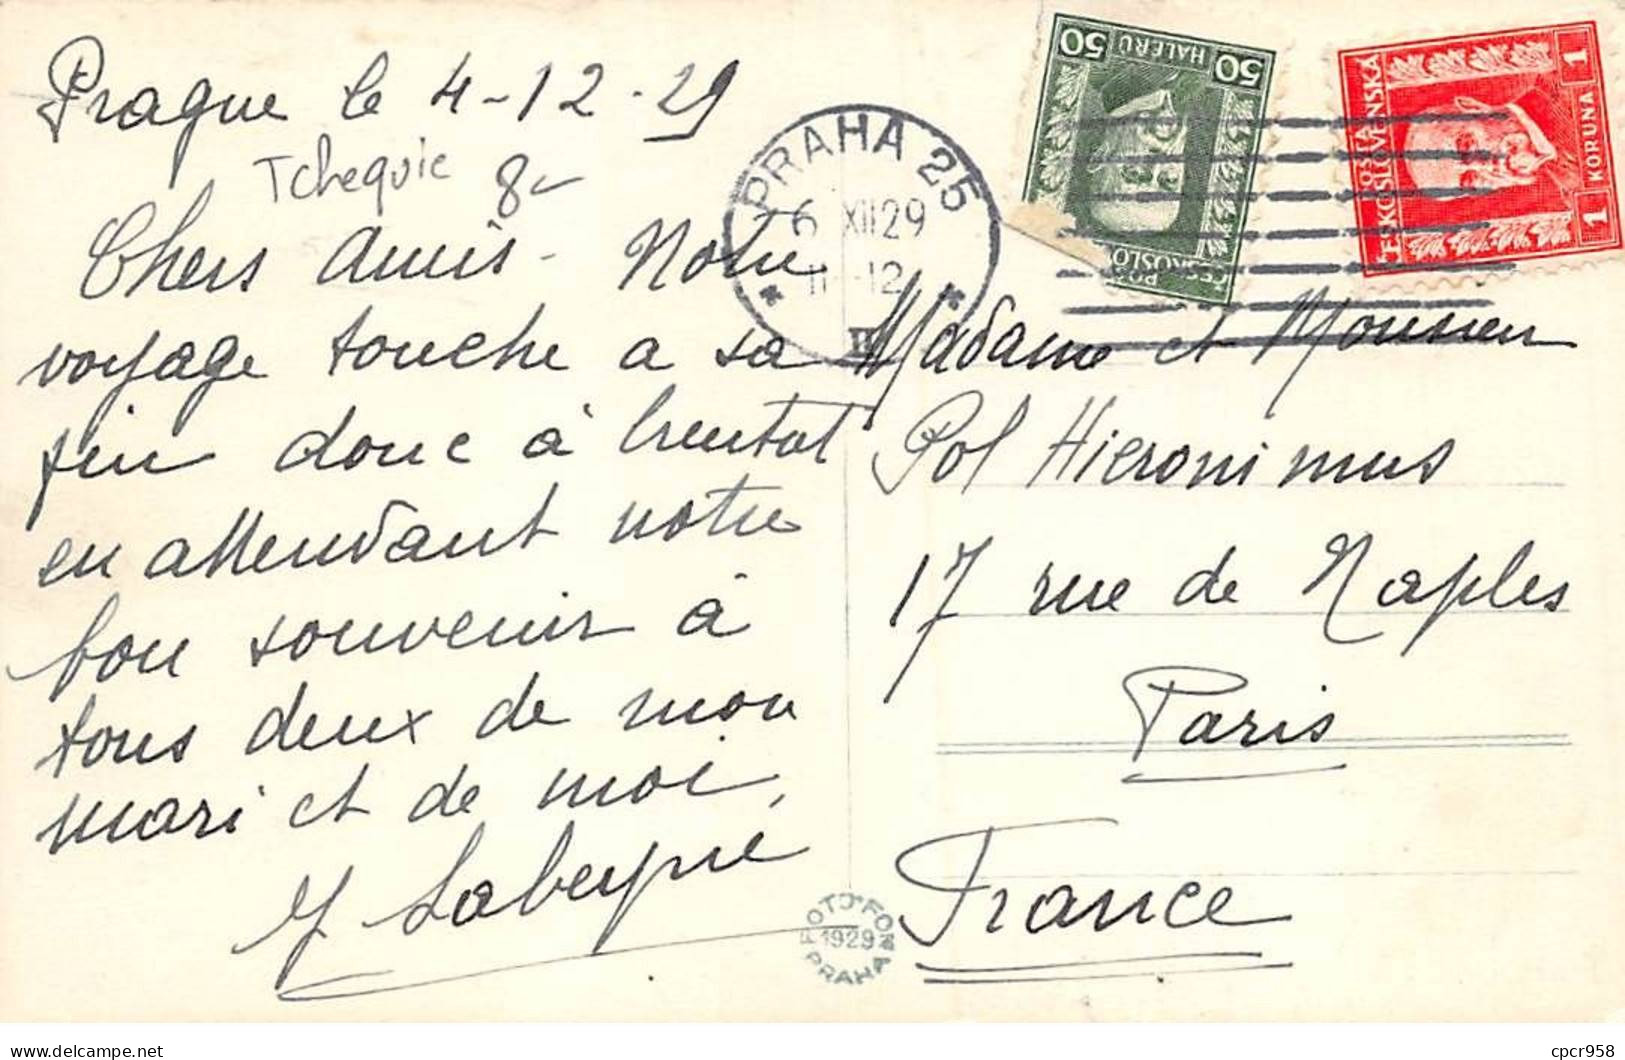 Prague le 4-12-29
Tchequie 8-
Chers Amis - Notre
voyage touche a sa
fin donc à bientot
en attendant notre
bon souvenir à
tous deux de mon
mari et de moi,
Y Labeyrie
PRAHA 25
6 XII 29
11 -12
* *
II
50 50
HALERU
POŠ
ČESKOSLO
POŠTA
ČESKOSLOVENSKA
1 KORUNA 1
Madame et Monsieur
Pol Hieronimus
17 rue de Naples
Paris
France
FOTO-FON
1929
PRAHA
delcampe.net
cpcr958